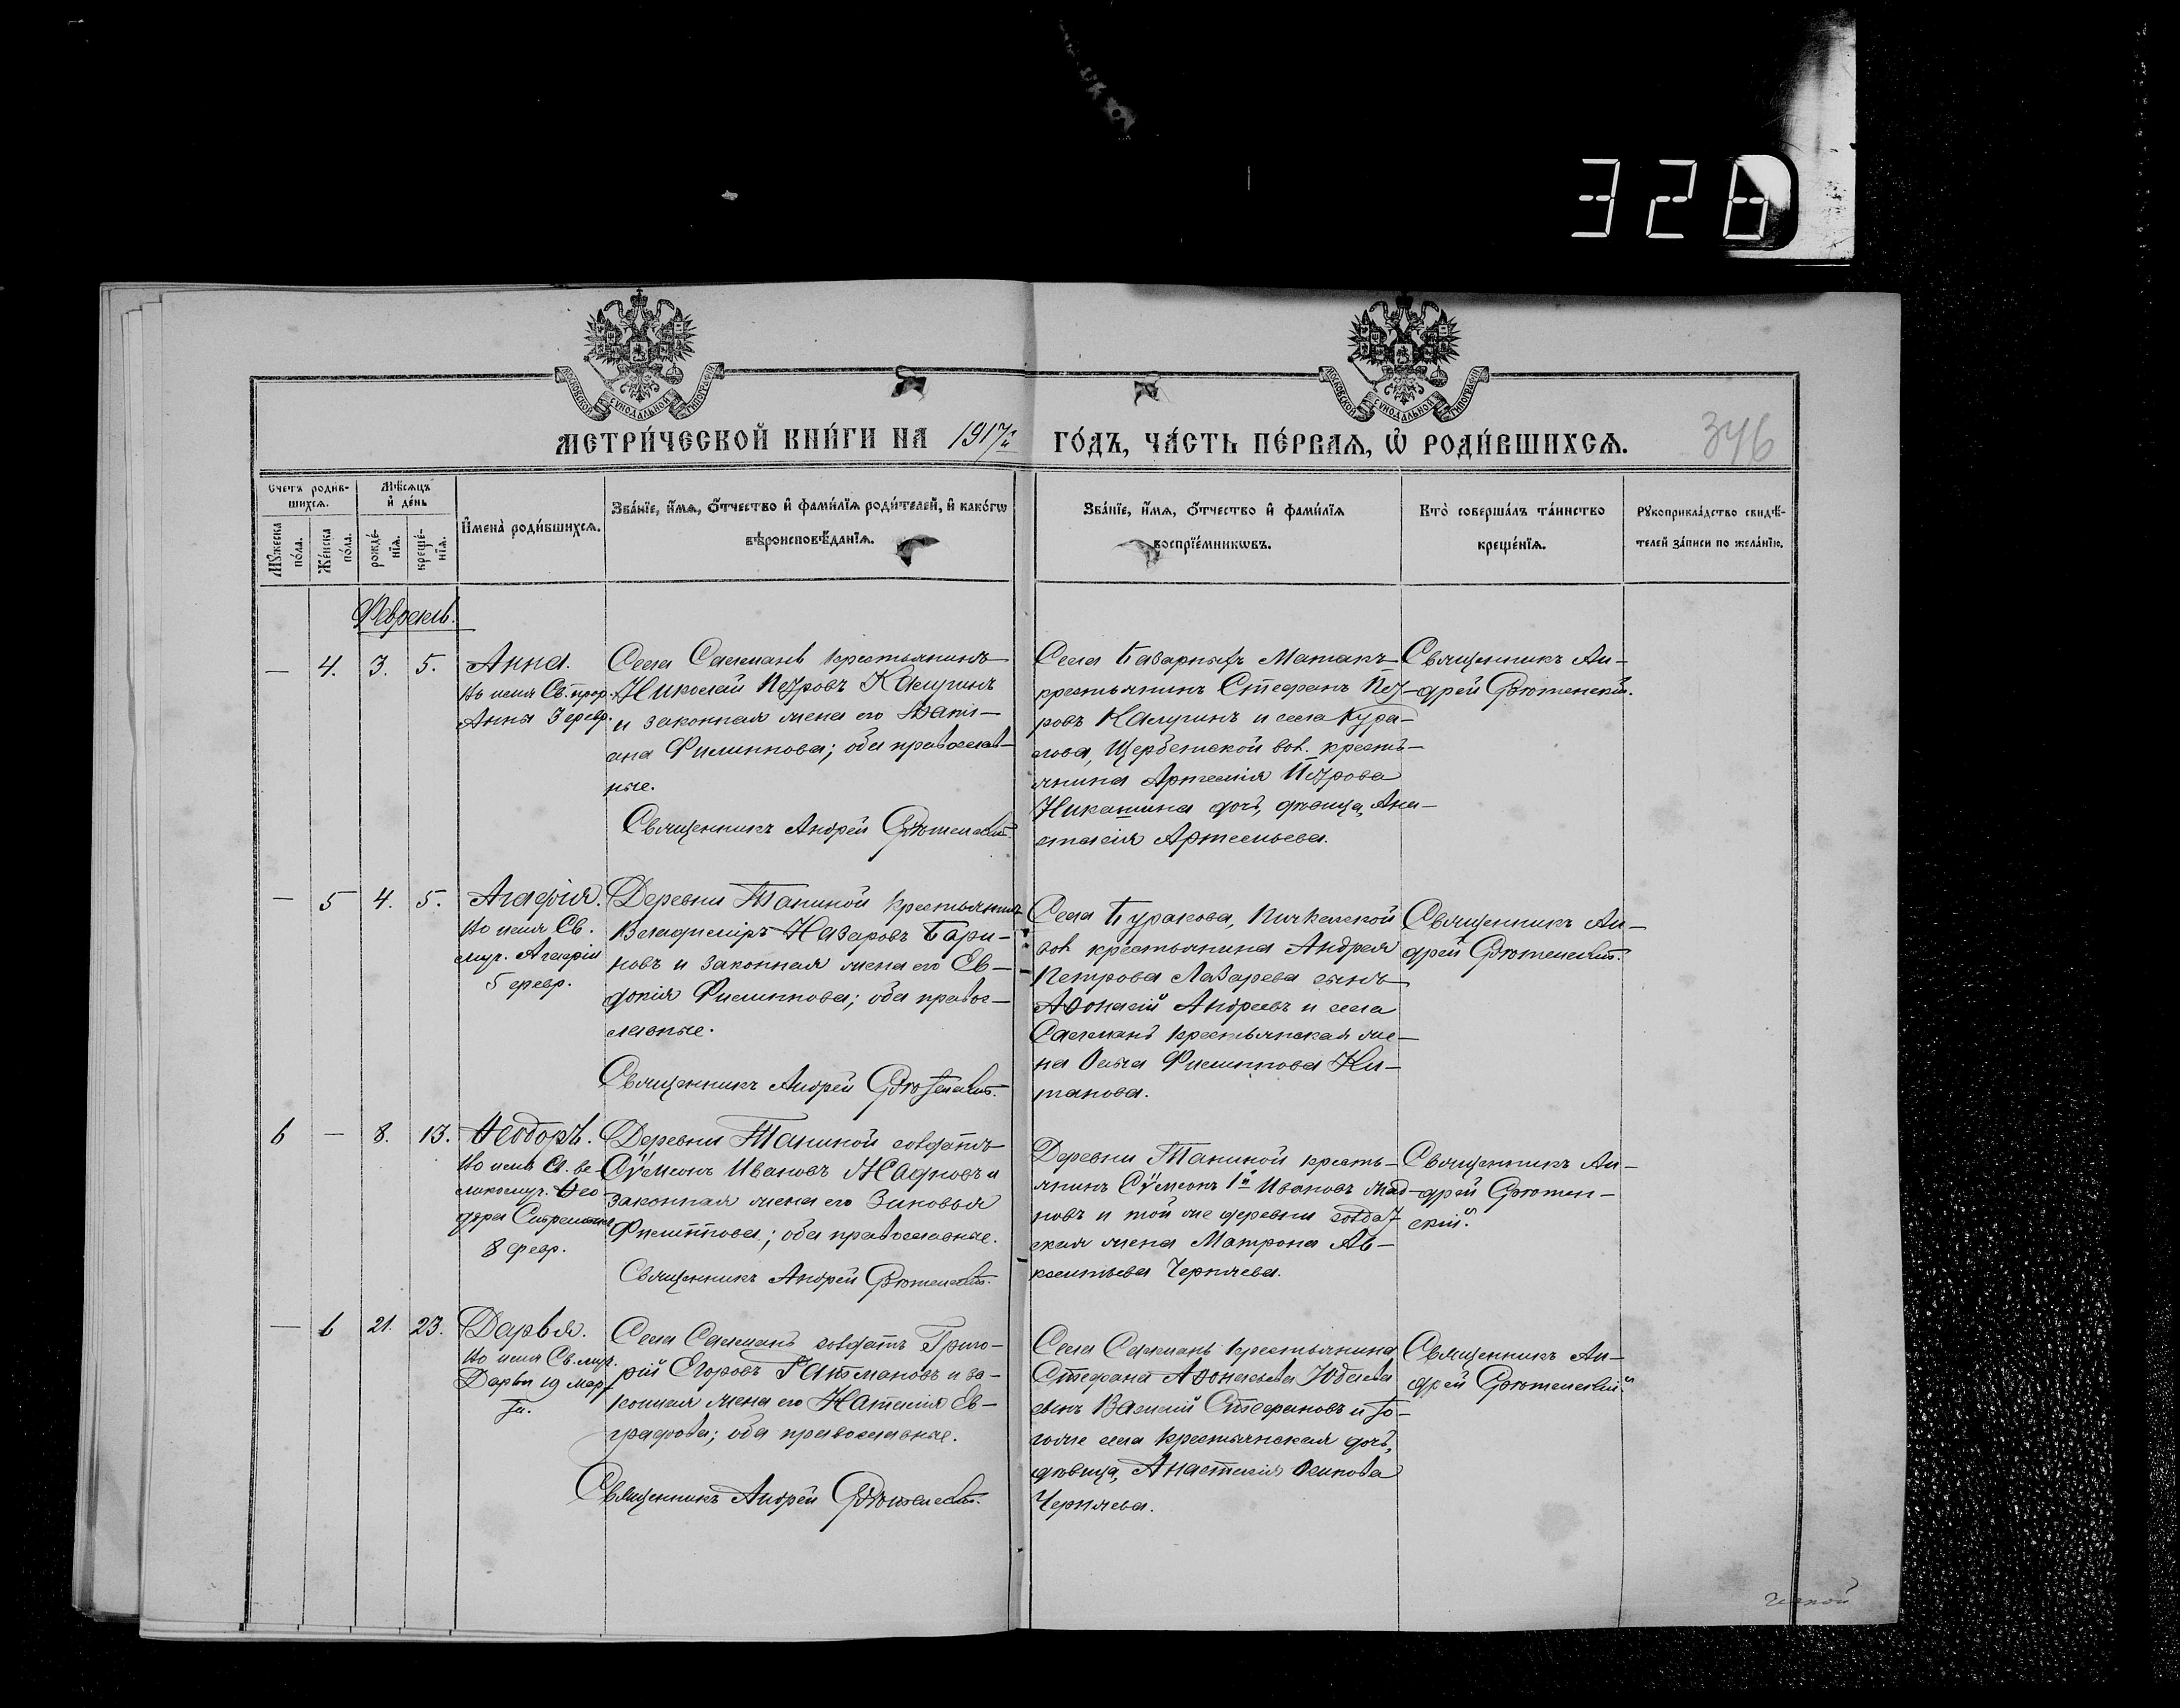 328
МОСКОВСКОЙ СѴНОДАЛЬНОЙ ТИПОГРАФІИ
МОСКОВСКОЙ СѴНОДАЛЬНОЙ ТИПОГРАФІИ
МЕТРИ́ЧЕСКОЙ КНИ́ГИ НА 1917й ГО́ДЪ, ЧА́СТЬ ПЕ́РВАЯ, Ѡ҆ РОДИ́ВШИХСѦ.
346
Счетъ родив-
шихсѧ.
Мꙋ́жеска по́ла.
Же́нска по́ла.
Мѣ́сѧцъ и҆ де́нь
рожде́-
нїѧ.
креще́-
нїѧ.
И҆мена̀ роди́вшихсѧ.
Зва́нїе, и҆́мѧ, ѻ҆́тчество и҆ фами́лїѧ роди́телей, и҆ како́гѡ
вѣроисповѣ́данїѧ.
Зва́нїе, и҆́мѧ, ѻ҆́тчество и҆ фами́лїѧ
воспрїе́мникѡвъ.
Кто̀ соверша́лъ та́инство
креще́нїѧ.
Рꙋкоприкла́дство свидѣ́-
телей за́писи по жела́нїю.
Февраль.
— 4. 3. 5.
Анна.
Во имя Св. прор.
Анны 3 февр.
Села Салманъ крестьянинъ
Николай Петровъ Калугинъ
и законная жена его Тати-
ана Филиппова; оба православ-
ные.
Священникъ Андрей
Села Базарныхъ Матакъ
крестьянинъ Стефанъ Пет-
ровъ Калугинъ и села Кура-
лова, Щербетской вол. кресть-
янина Артемія Петрова
Никашина дочь, дѣвица, Ана-
стасія Артемьева.
Священникъ Ан-
дрей
— 5 4. 5.
Агафія.
Во имя Св.
муч. Агафіи
5 февр.
Деревни Таниной крестьянинъ
Владиміръ Назаровъ Бари-
новъ и законная жена его Ев-
докія Филиппова; оба правос-
лавные.
Священникъ Андрей
Села Буракова,
вол. крестьянина Андрея
Петрова Лазарева сынъ
Аѳонасій Андреевъ и села
Салманъ крестьянская же-
на Ольга Филиппова Ки-
танова.
Священникъ Ан-
дрей
6 — 8. 13.
Ѳеодоръ.
Во имя Св. ве-
ликомуч. Ѳео-
дора Стратилата
8 февр.
Деревни Таниной солдатъ
Сѵмеонъ Ивановъ Жадновъ и
законная жена его Зиновья
Филиппова; оба православные.
Священникъ Андрей
Деревни Таниной кресть-
янинъ Сѵмеонъ 1й Ивановъ Жад-
новъ и той же деревни солдат-
ская жена Матрона Ав-
ксентьева Черняева.
Священникъ Ан-
дрей
— 6 21. 23.
Дарья.
Во имя Св. муч.
Дарьи 19 мар-
та.
Села Салманъ солдатъ Григо-
рій Егоровъ и за-
конная жена его Наталія Ев-
графова; оба православные.
Священникъ Андрей
Села Салманъ крестьянина
Стефана Аѳонасьева Юдаева
сынъ Василій Стефановъ и то-
гоже села крестьянская дочь,
дѣвица, Анастасія Осипова
Черняева.
Священникъ Ан-
дрей